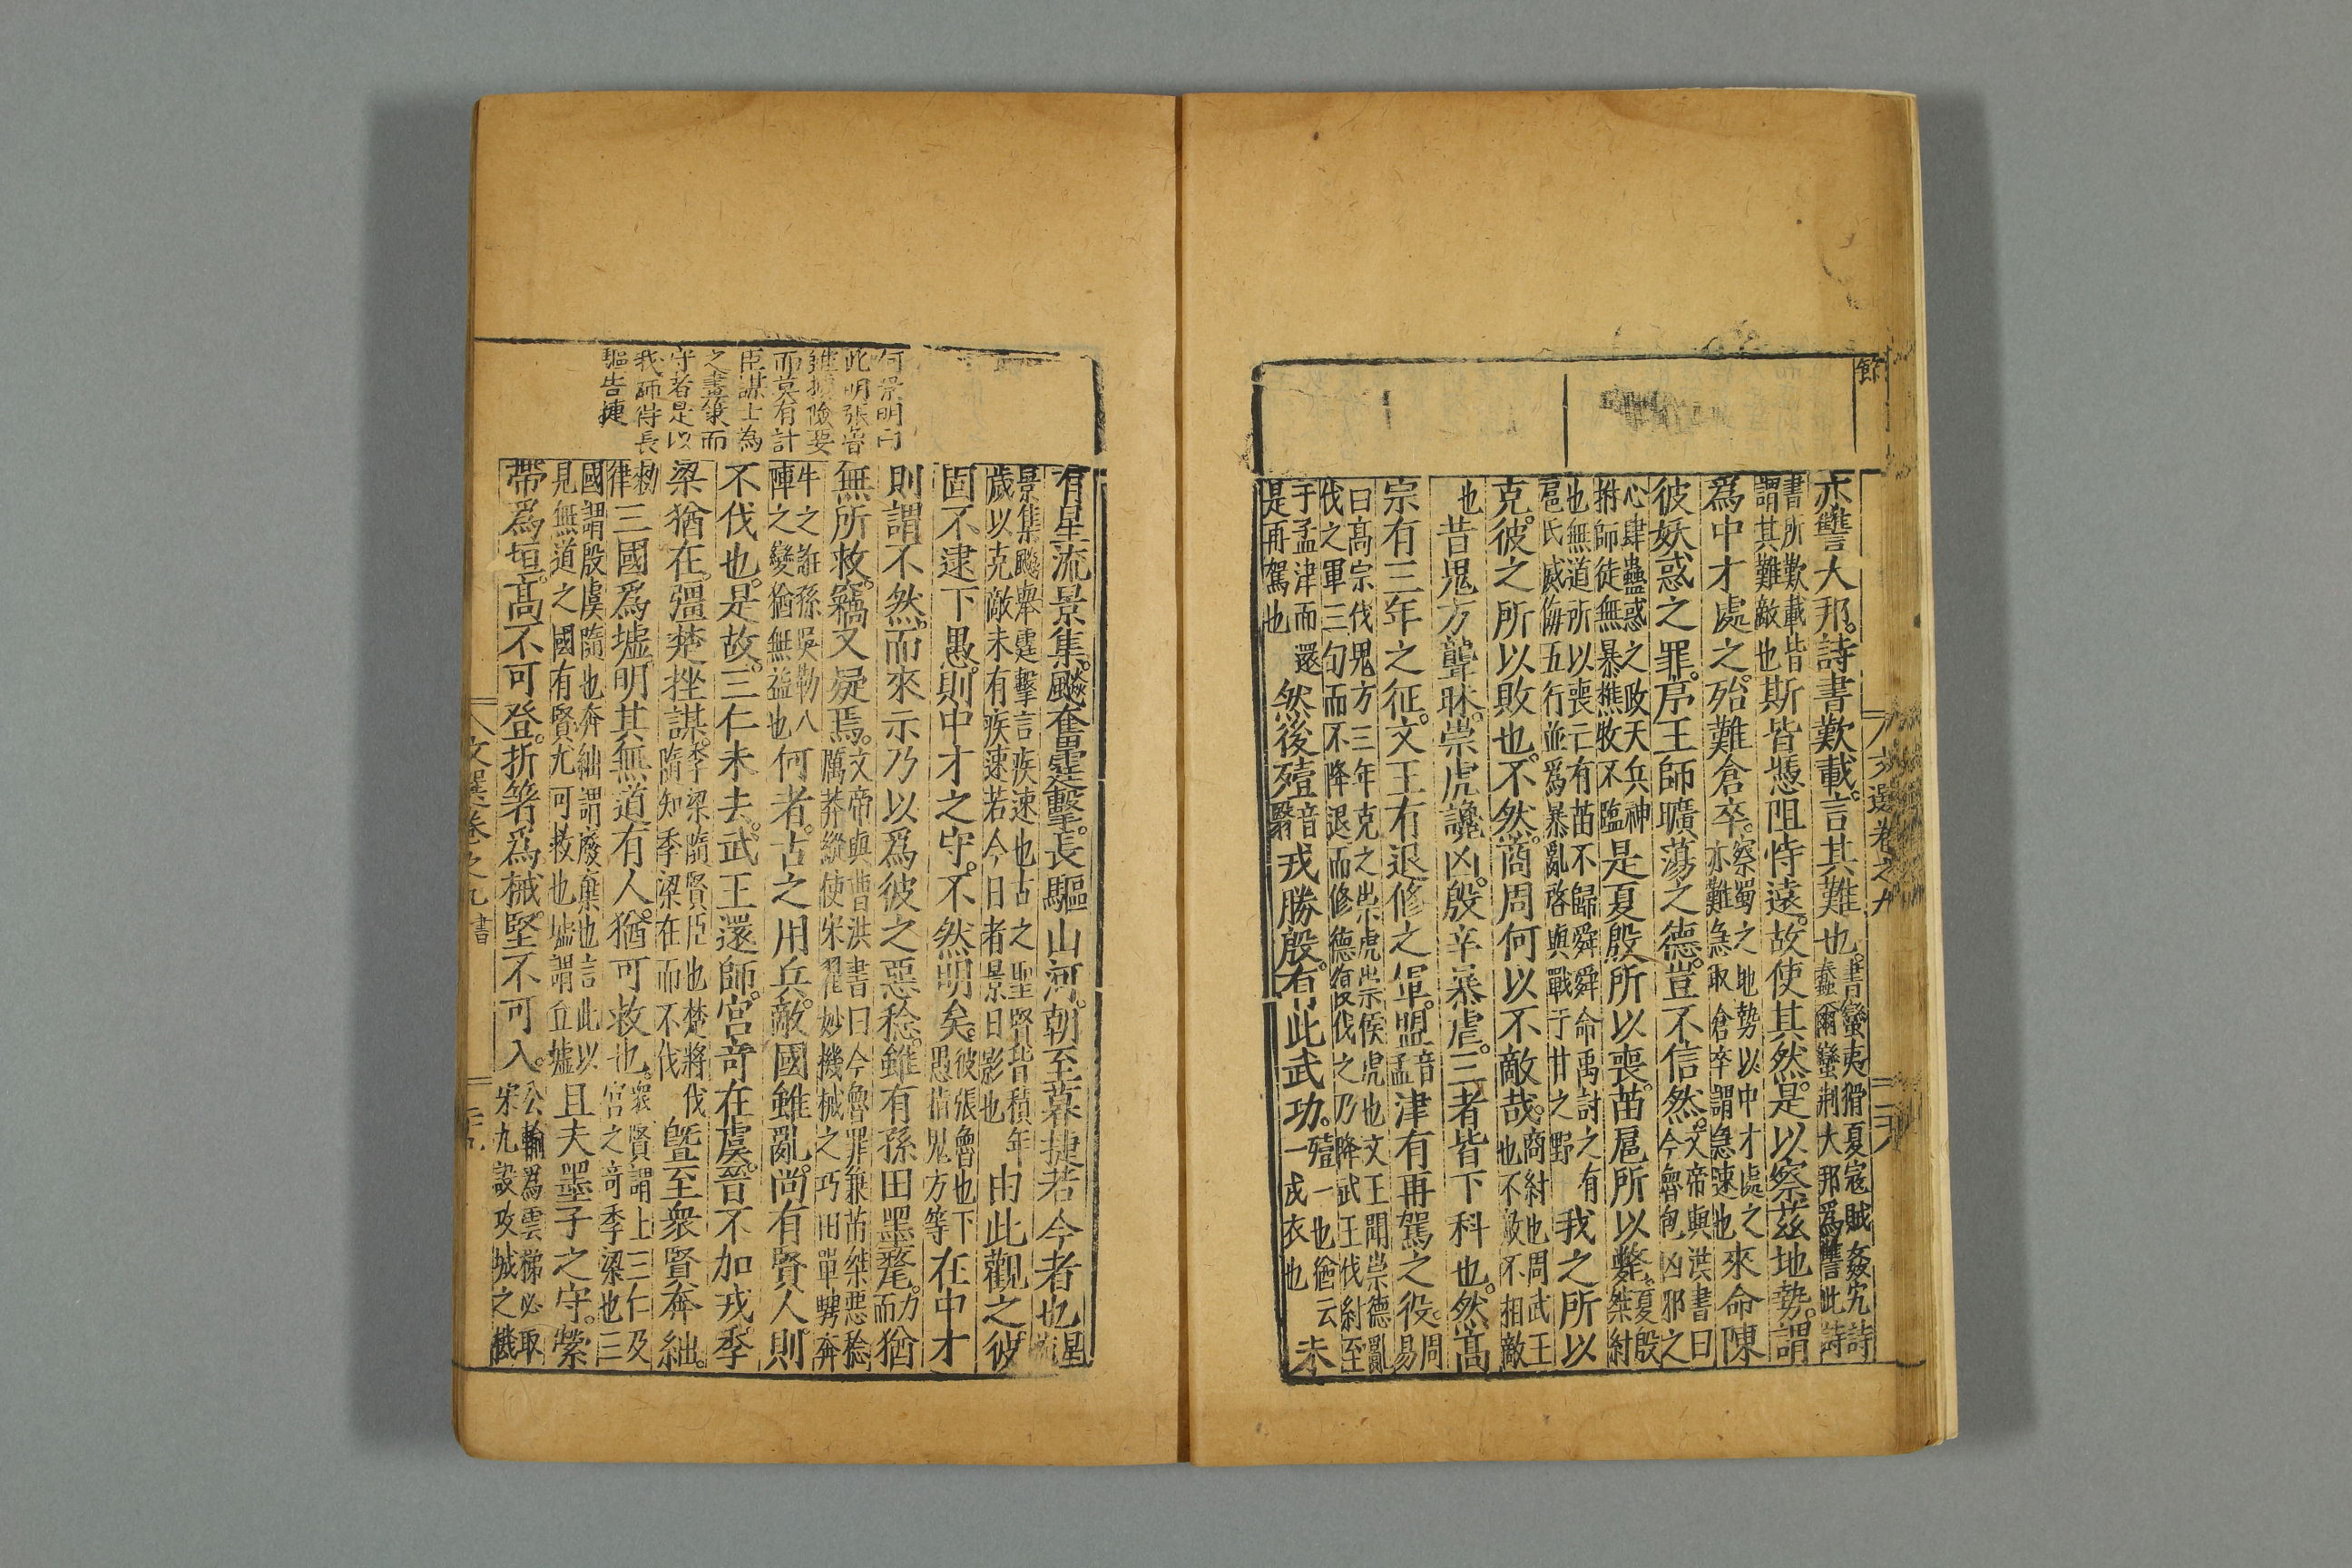 餘
文選卷之九
亦讐大邦。詩書歎載。言其難也。
書蠻夷猾夏寇賊姦宄詩
蠢爾蠻荆大邦爲讐此詩
書所歎載皆
謂其難敵也
斯皆憑阻恃遠。故使其然。是以察茲地勢。謂
爲中才處之。殆難倉卒。
察蜀之地勢以中才處之
亦難急取倉卒謂急速也
來命陳
彼妖惑之罪。序王師曠蕩之德。豈不信然。
文帝與洪書曰
今魯包凶邪之
心肆蠱惑之政天兵神
拊師徒無暴樵牧不臨
是夏殷所以喪。苗扈所以斃。
夏殷
桀紂
也無道所以喪亡有苗不歸舜舜命禹討之有
扈氏威侮五行並爲暴亂啓與戰于甘之野
我之所以
克。彼之所以敗也。不然。商周何以不敵哉。
商紂也周武王
也不敵不相敵
也
昔鬼方聾昧。崇虎讒凶。殷辛暴虐。三者皆下科也。然高
宗有三年之征。文王有退修之軍。盟
音
孟
津有再駕之役。
周
易
曰高宗伐鬼方三年克之崇虎崇侯虎也文王聞崇德亂
伐之軍三旬而不降退而修德復伐之乃降武王伐紂至
于孟津而還
是再駕也
然後殪
音
翳
戎勝殷。有此武功。
殪一也猶云
一戎衣也
未
何景明曰
此明張魯
雖據險要
而莫有計
臣謀士為
之畫策而
守者是以
我師得長
驅告捷
有星流景集。飈奮霆擊。長驅山河。朝至暮捷。若今者也。
星
流
景集飈舉霆擊言疾速也古之聖賢皆積年
歲以克敵未有疾速若今日者景日影也
由此觀之。彼
固不逮下愚。則中才之守。不然明矣。
彼張魯也下
愚指鬼方等
在中才
則謂不然。而來示乃以爲彼之惡稔。雖有孫田墨氂。
力
而
猶
無所救。竊又疑焉。
文帝與曹洪書曰今魯罪兼苗桀惡稔
厲莽縱使宋翟妙機械之巧田單騁奔
牛之誑孫吳勒八
陣之變猶無益也
何者。古之用兵。敵國雖亂。尚有賢人。則
不伐也。是故。三仁未去。武王還師。宮竒在虞。晉不加戎。季
梁猶在。彊楚挫謀。
季梁隨賢臣也楚將伐
隋知季梁在而不伐
曁至衆賢奔絀。
敕
律
三國爲墟。明其無道有人。猶可救也。
衆賢謂上三仁及
宮之竒季梁也三
國謂殷虞隋也奔絀謂廢棄也言此以
見無道之國有賢尤可救也墟謂丘墟
且夫墨子之守。縈
帶爲垣。高不可登。折箸爲械。堅不可入。
公輸爲雲梯必取
宋九設攻城之機
文選卷之九
書